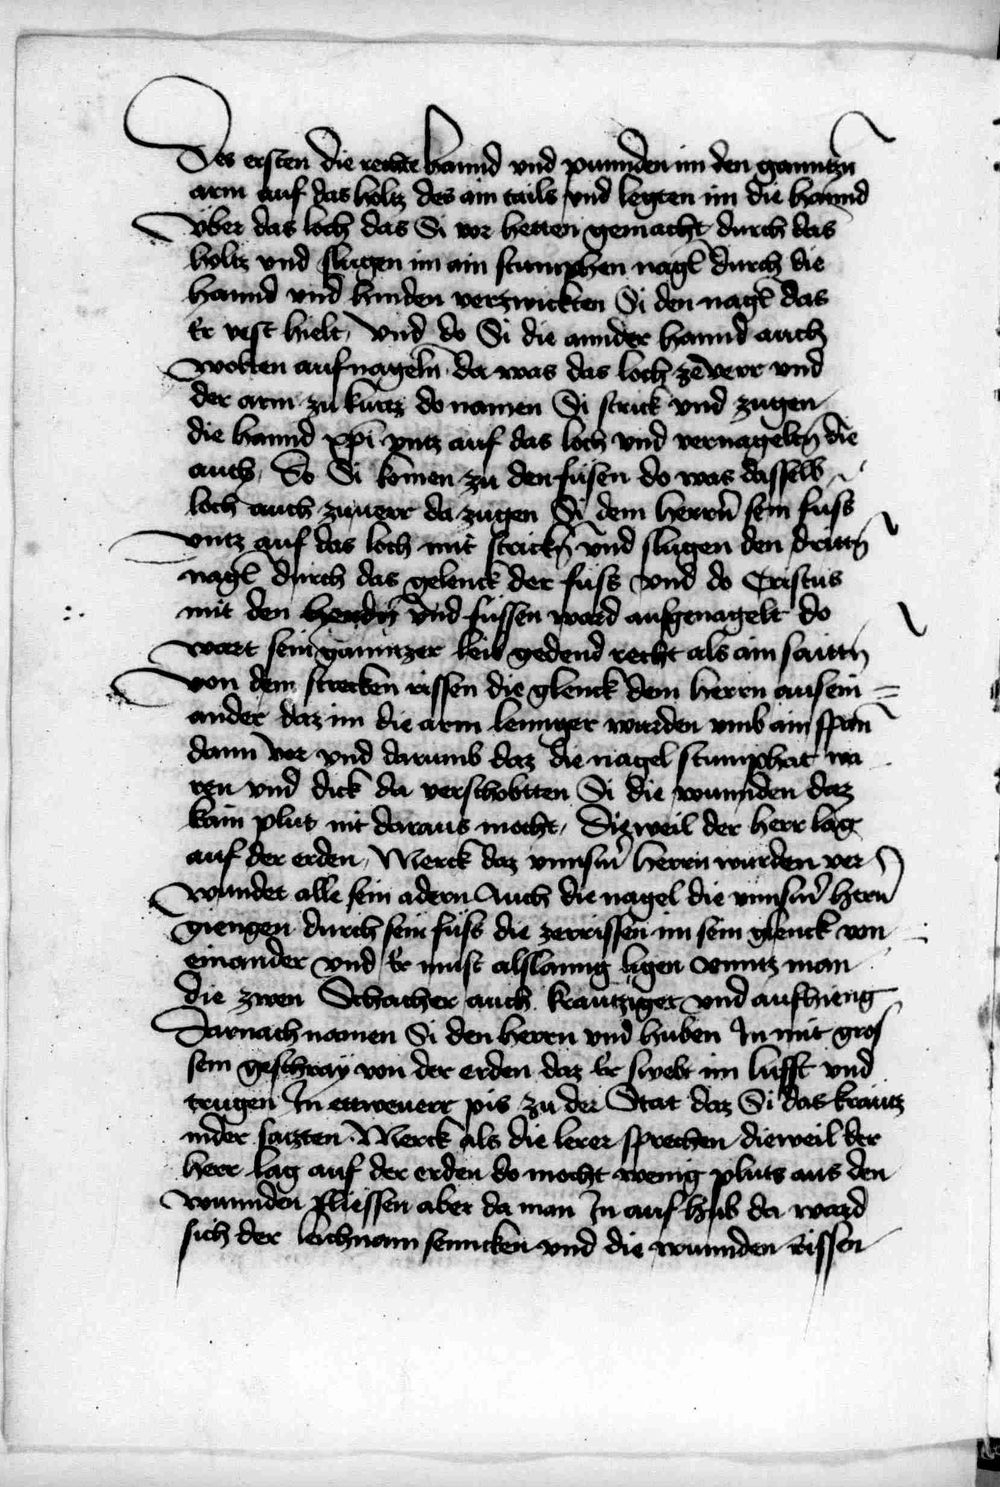 Des ersten die rechte hannd vnd punnden im den ganntzn̄
arm auf das holtz des ain tails vnd legten im die hannd
vber das loch das Si vor hetten gemacht durch das
holtz vnd slugen im ain stumphen nagl durch die
hannd vnd hinden verzwickten Si den nagl das
Er vest hielt, vnd do Si die annder hannd auch
wolten aufnageln da was das loch ze verr vnd
der arm zu kurtz do namen Si strick vnd zugen
die hannd xp̄i vntz auf das loch vnd vernageltn̄ die
auch, Do Si komen zu den fusen do was dasselb
loch auch zuuerr da zugen Si dem herrn̄ sein fuss
vntz auf das loch mit strickn̄ vnd slugen den drittn̄
nagl durch das gelenck der fuss vnd do Cristus
mit den hendn̄ vnd fussen ward aufgenagelt do
wart sein ganntzer leib gedend recht als ain saittn̄
von dem strecken rissen die glenck dem herrn ausein
ander daz im die arm lennger wurden vmb ain span̄
dann vor vnd darumb daz die nagel stumphat wa
ren vnd dick da verschobtten Si die wunnden daz
kain plut nit daraus mocht, Dieweil der herr lag
auf der erden, Merck daz vnnsm̄ herrn wurden ver
wundet alle sein adern Auch die nagel die vnnsm̄ hern̄
giengen durch sein fuss die zerrissen im sein glenck von
einander vnd Er must alslanng ligen vnntz man
die zwen Schacher auch krautziget vnd aufhieng
Darnach namen Si den herrn vnd huben In mit gros
sem geschray von der erden daz Er swebt im lufft vnd
trugen In ettweuerr pis zu der Stat daz Si das kräutz
nider satzten. Merck als die lerer sprechen dieweil der
herr lag auf der erden do mocht wenig pluts aus den
wunnden fliessen aber da man In auf hub da ward
sich der leichnam senncken vnd die wunnden rissen